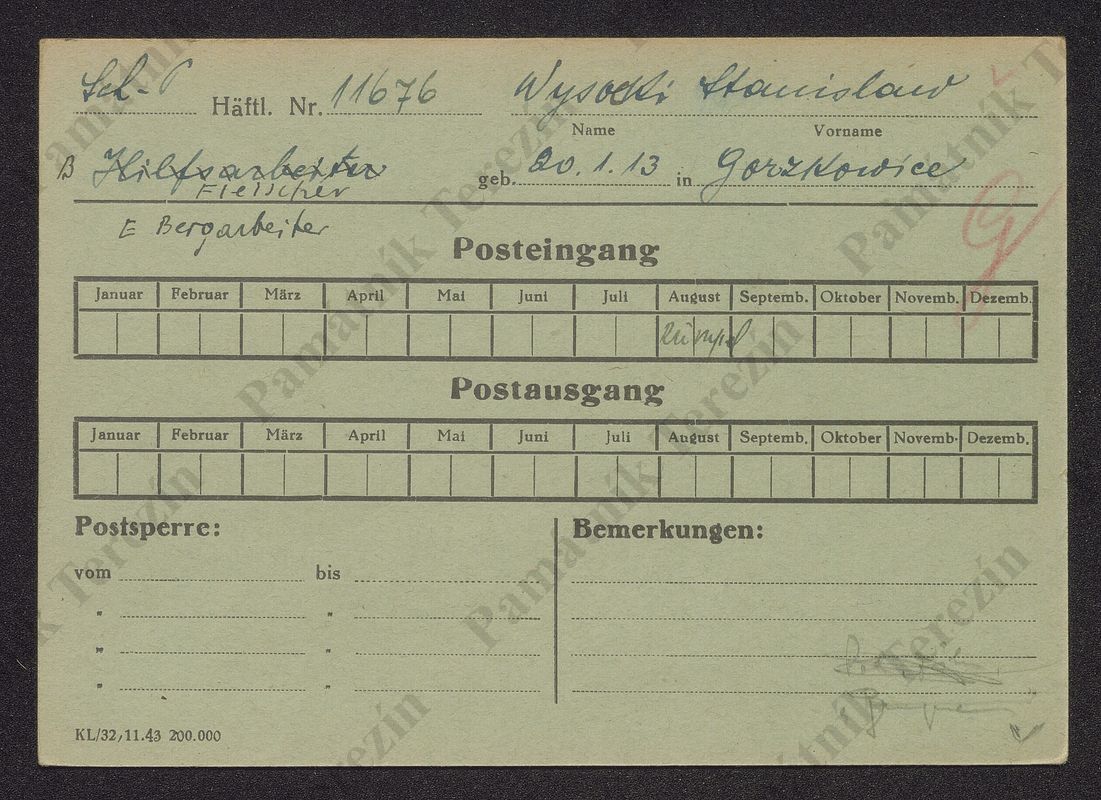 Sch-P Häftl. Nr. 11676 Wysocki Stanislaw
Name Vorname
B Hilfsarbeiter geb. 20.1.13 in Gorzkowice
Fleischer
E Bergarbeiter
G
Posteingang
Januar Februar März April Mai Juni Juli August Septemb. Oktober Novemb. Dezemb.
Postausgang
Januar Februar März April Mai Juni Juli August Septemb. Oktober Novemb. Dezemb.
Postsperre: Bemerkungen:
vom bis
" "
" "
" "
KL/32, 11.43 200.000
Památník Terezín